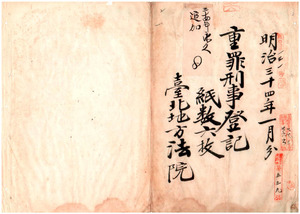 明治三十四年一月分
重罪刑事登記
紙数六枚
臺北地方法院
追加